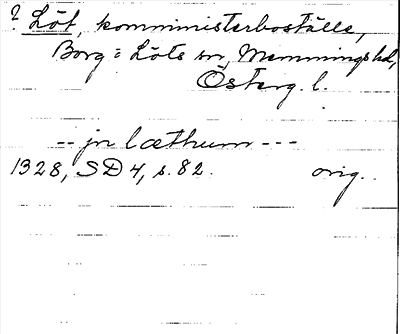 ? Löt, komministerboställe,
Borg = Löts sn, Memmings hd,
Österg. l.
-- jn læthum ---
1328, SD 4, s. 82. orig.